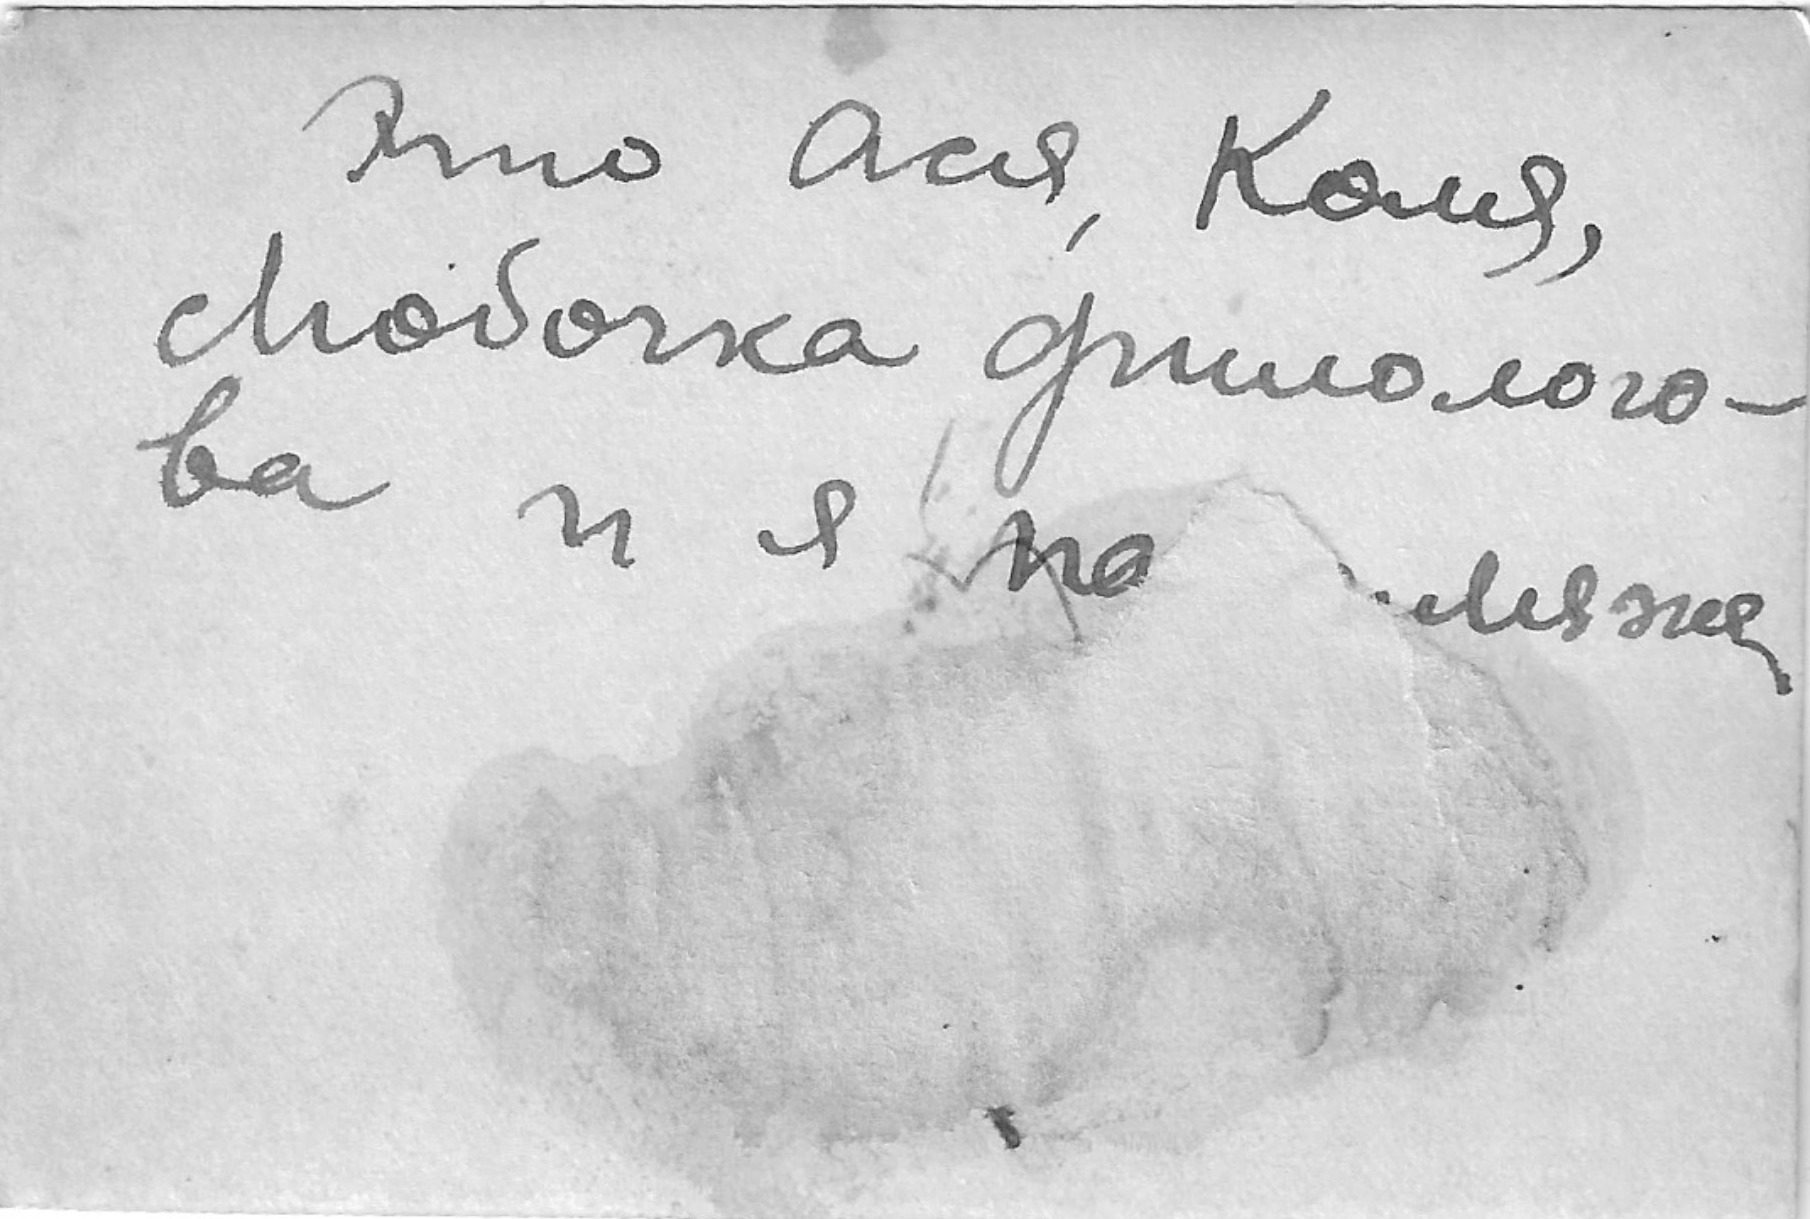 Это Ася, Коля,
Любочка Филолого-
ва и я на пляже